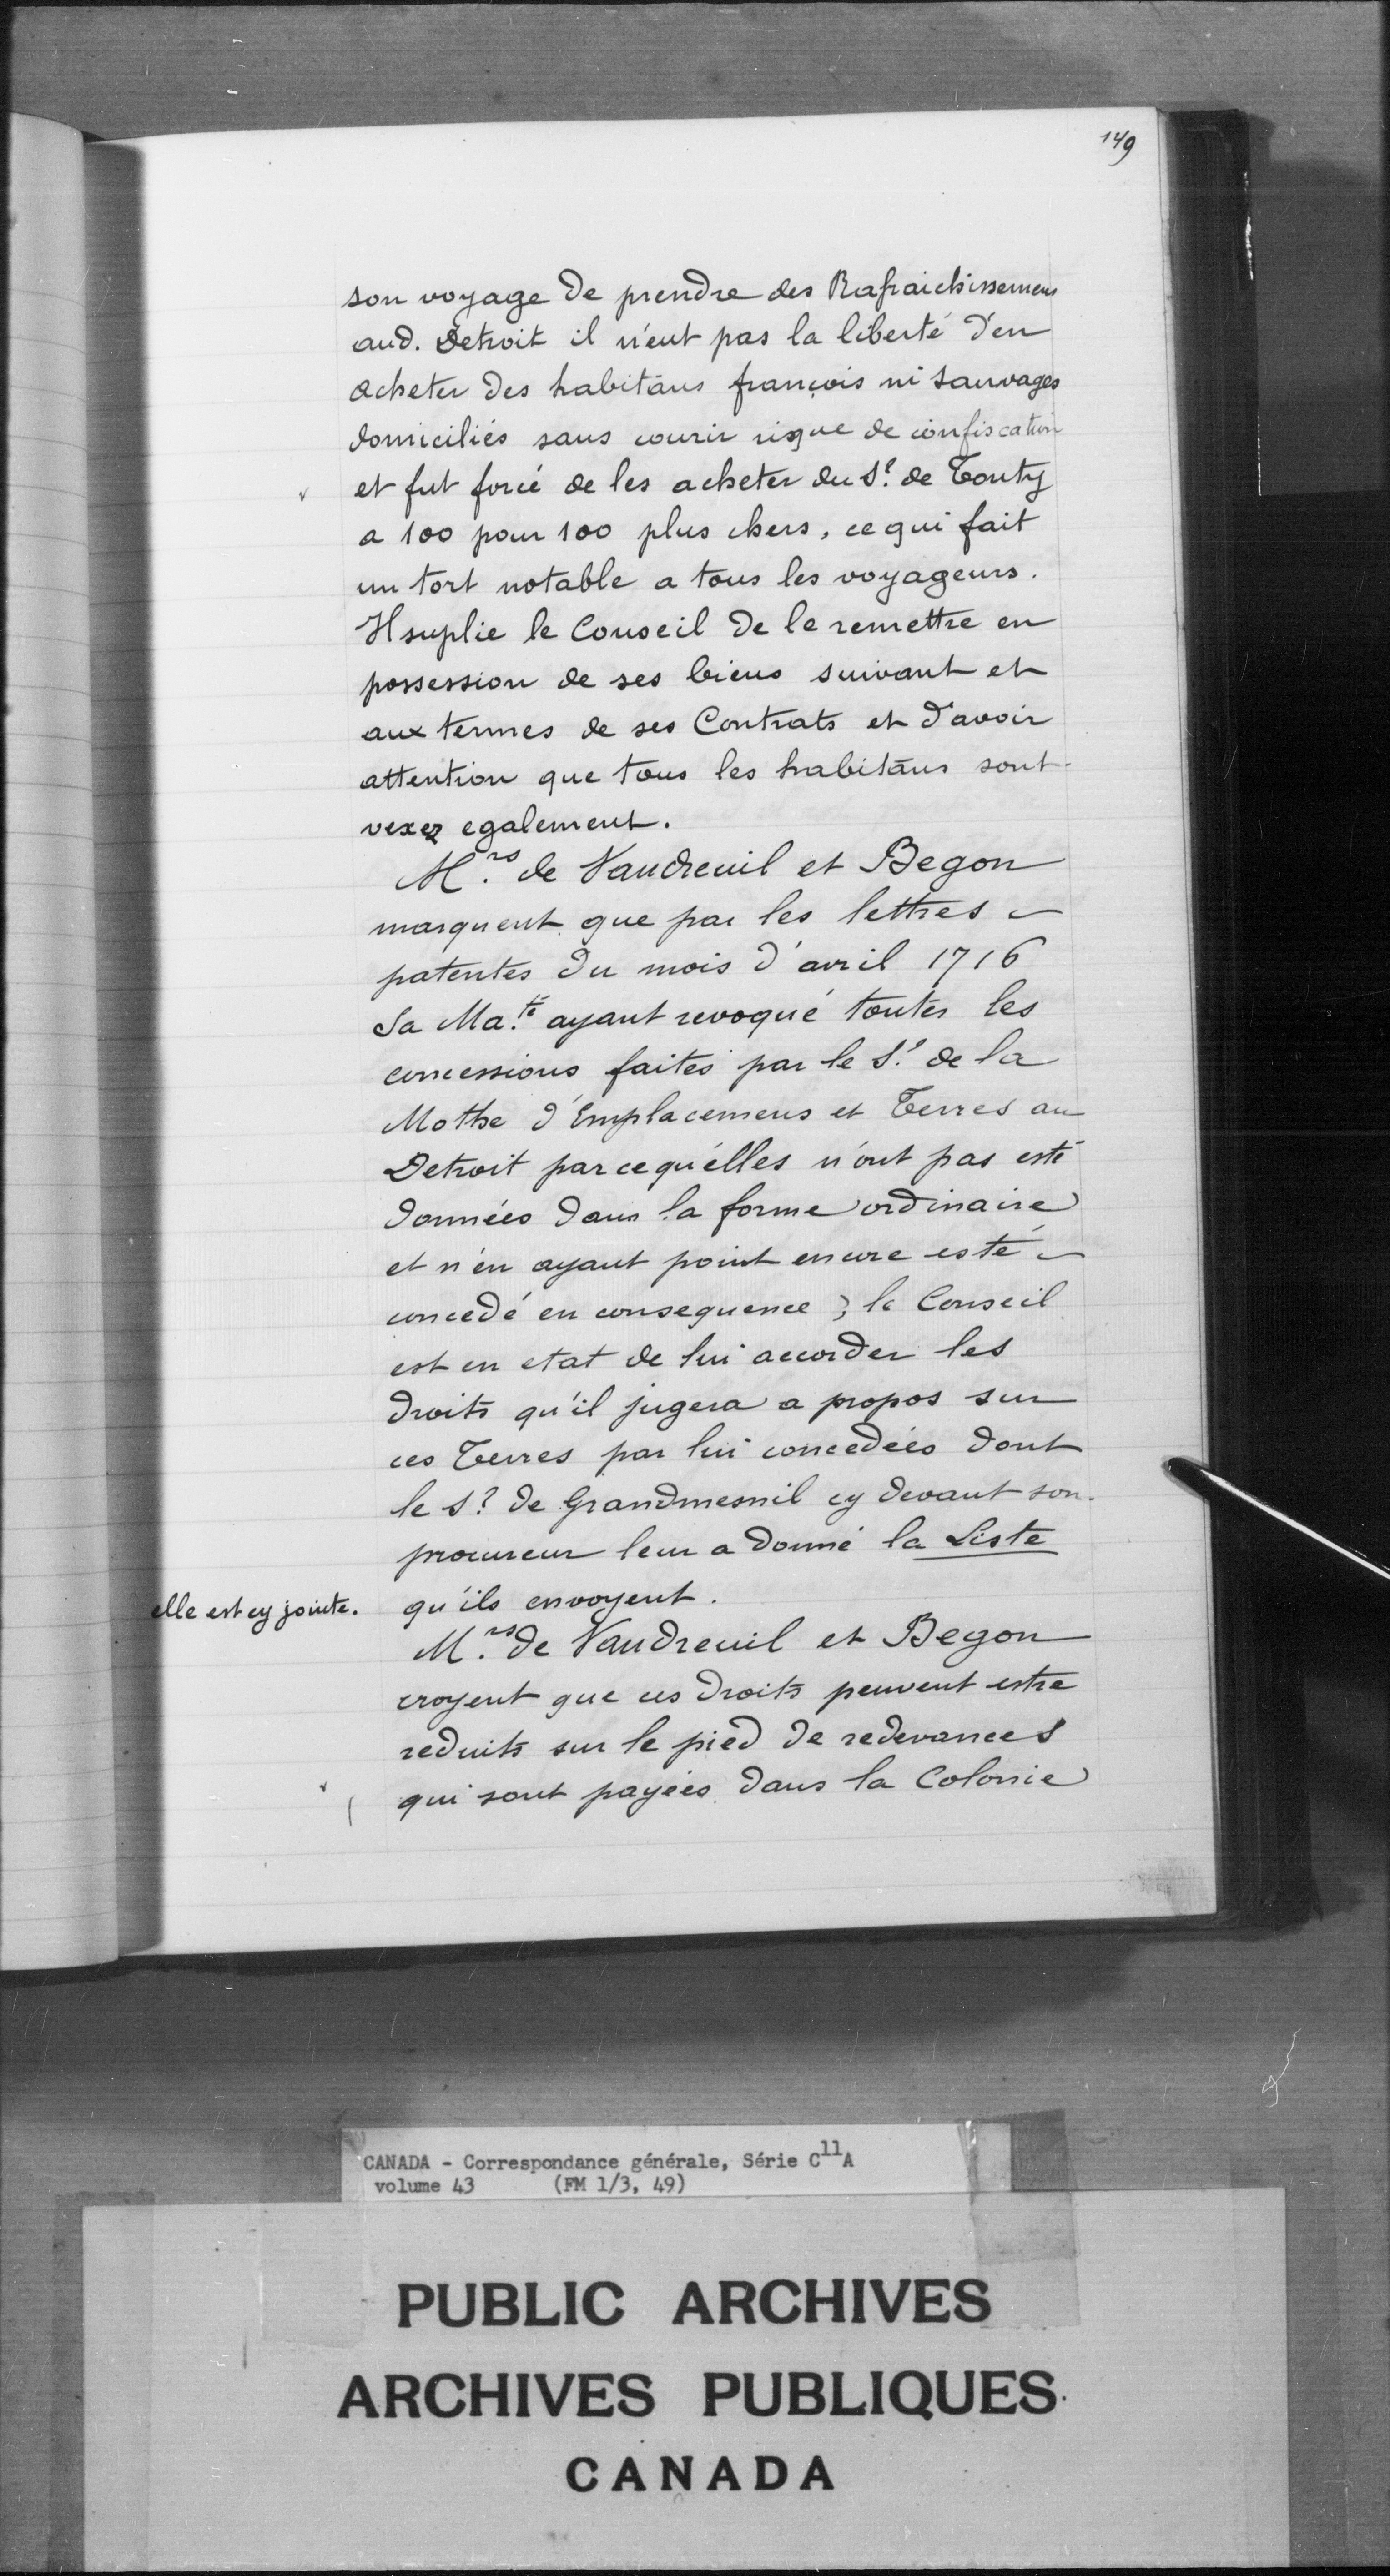 149
son voyage de prendre des Rafraichissemens
aud. Detroit il n'eut pas la liberté d'en
acheter des habitãns françois ni sauvages
domiciliés sans courir risque de confiscation
et fut forcé de les acheter du S.r de Tonty
a 100 pour 100 plus chers, ce qui fait
un tort notable a tous les voyageurs.
Il suplie le Conseil de le remettre en
possession de ses biens suivant et
aux termes de ses Contrats et d'avoir
attention que tous les habitãns sont
vexez egalement.
M.rs de Vaudreuil et Begon
marquent que par les lettres
patentes du mois d'avril 1716
Sa Ma.té ayant revoqué toutes les
concessions faites par le S.r de la
Mothe d'Emplacemens et Terres au
Detroit parcequ'elles n'ont pas esté
données dans la forme ordinaire
et n'en ayant point encore esté
concedé en consequence ; le Conseil
est en etat de lui accorder les
droits qu'il jugera a propos sur
ces Terres par lui concedées dont
le S.r de Grandmesnil cy devant son
procureur leur a donné la Liste
elle est cy jointe. qu'ils envoyent.
M.rs de Vaudreuil et Begon
croyent que ces droits peuvent estre
reduits sur le pied de redevances
qui sont payées dans la Colonie
CANADA - Correspondance générale, Série C11A
volume 43 (FM 1/3, 49)
PUBLIC ARCHIVES
ARCHIVES PUBLIQUES
CANADA